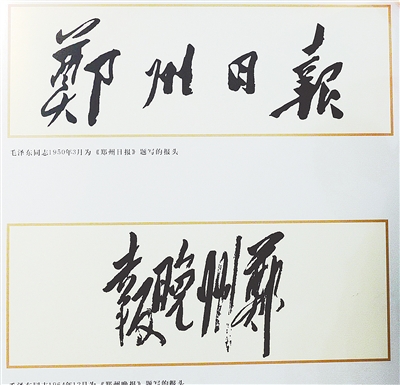 鄭州日報
毛泽东同志1950年3月为《郑州日报》题写的报头
鄭州晚報
毛泽东同志1964年12月为《郑州晚报》题写的报头